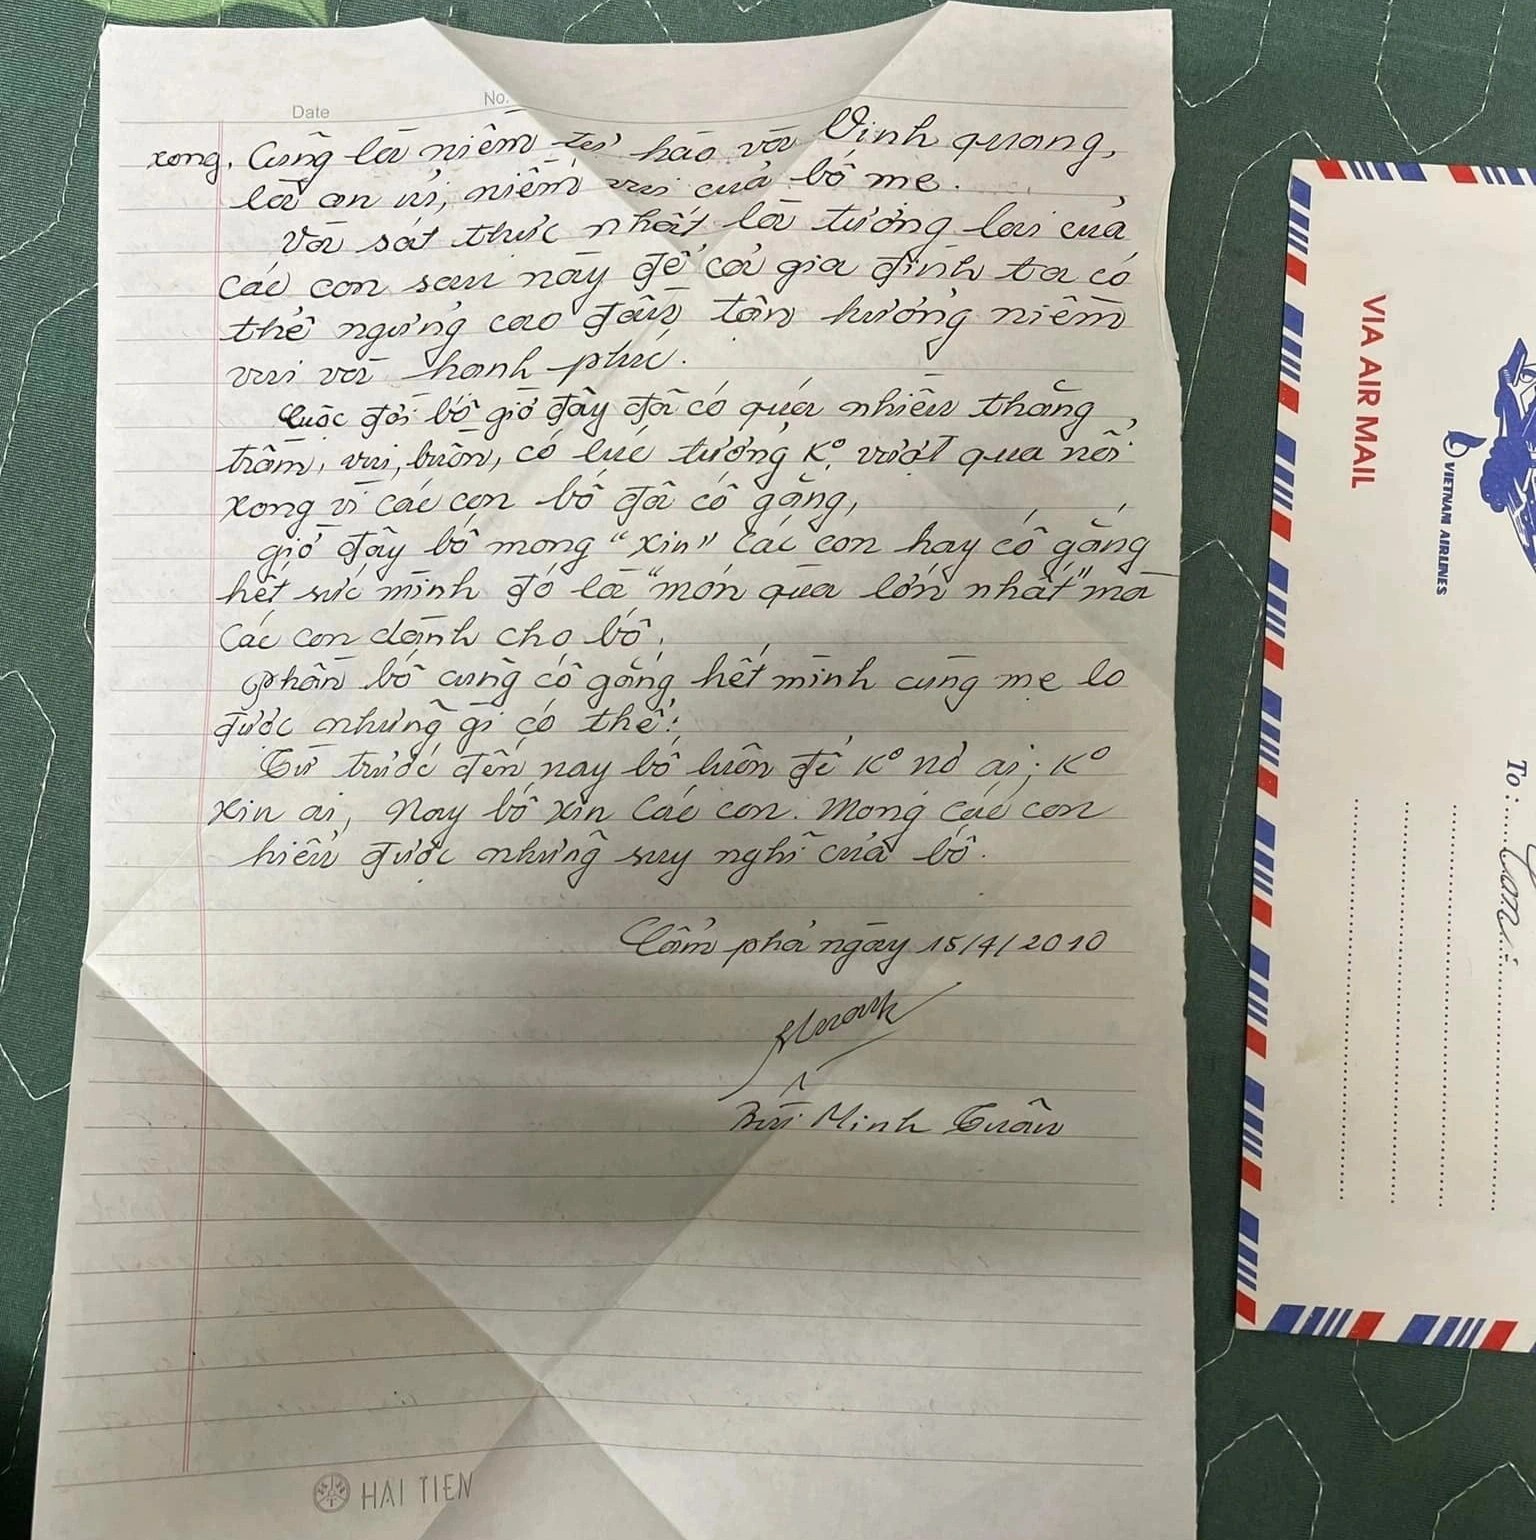 Date
No.
xong, Cũng là niềm tự hào và Vinh quang,
là an ủi, niềm vui của bố mẹ.
Và sát thực nhất là tương lai của
các con sau này để cả gia đình ta có
thể ngưng cao đầu tận hưởng niềm
vui và hạnh phúc.
Cuộc đời bố giờ đây đã có quá nhiều thăng
trầm, vui, buồn, có lúc tưởng Ko vượt qua nổi
xong vì các con bố đã cố gắng,
giờ đây bố mong "xin" các con hay cố gắng
hết sức mình đó là "món qùa lớn nhất" mà
các con dành cho bố.
Phần bố cũng cố gắng hết mình cùng mẹ lo
được những gì có thể.
Từ trước đến nay bố luôn để Ko nợ ai; Ko
xin ai, Nay bố xin các con. Mong các con
hiểu được những suy nghĩ của bố.
Cẩm phả ngày 15/4/2010
Bùi Minh Tuân
HẢI TIẾN
VIA AIR MAIL
VIETNAM AIRLINES
To: Con: